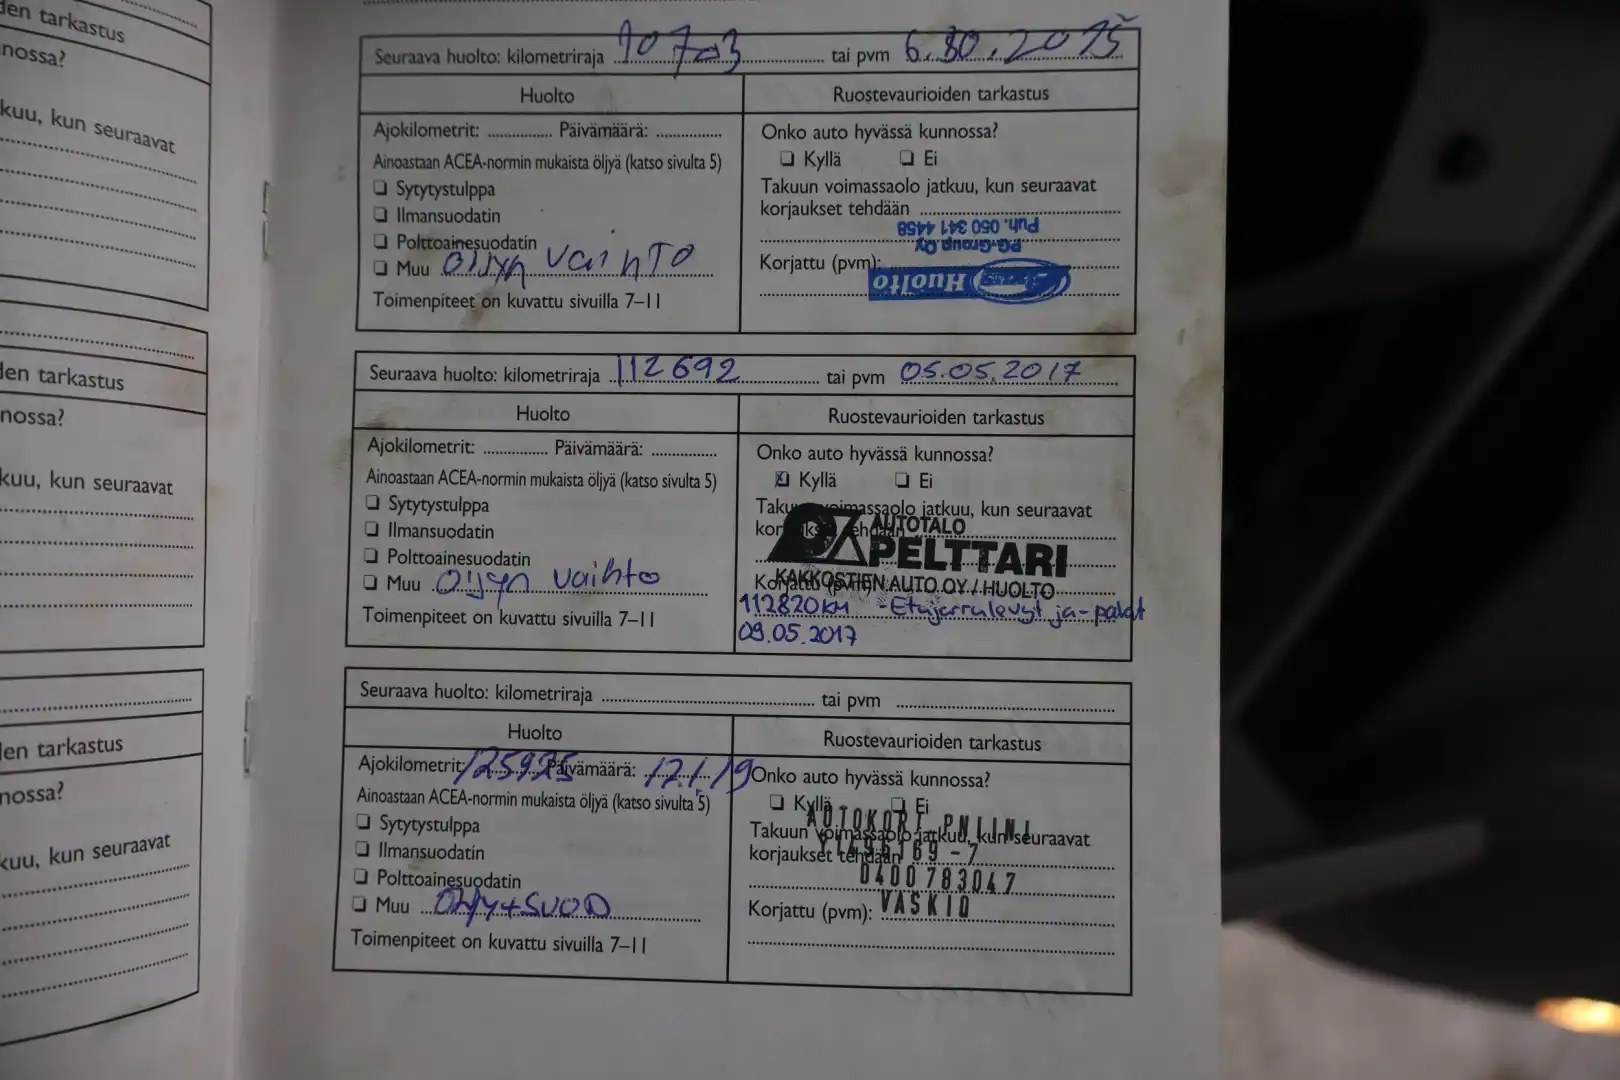 den tarkastus
nossa?
kuu, kun seuraavat
den tarkastus
nossa?
kuu, kun seuraavat
den tarkastus
nossa?
kuu, kun seuraavat
Seuraava huolto: kilometriraja 10703 tai pvm 6.30.2015
Huolto
Ruostevaurioiden tarkastus
Ajokilometrit: Päivämäärä:
Ainoastaan ACEA-normin mukaista öljyä (katso sivulta 5)
Sytytystulppa
Ilmansuodatin
Polttoainesuodatin
Muu öljyn vaihto
Toimenpiteet on kuvattu sivuilla 7–11
Onko auto hyvässä kunnossa?
Kyllä Ei
Takuun voimassaolo jatkuu, kun seuraavat
korjaukset tehdään
Korjattu (pvm):
Huolto
PG-Group Oy
Puh. 050 341 4458
Seuraava huolto: kilometriraja 112692 tai pvm 05.05.2017
Huolto
Ruostevaurioiden tarkastus
Ajokilometrit: Päivämäärä:
Ainoastaan ACEA-normin mukaista öljyä (katso sivulta 5)
Sytytystulppa
Ilmansuodatin
Polttoainesuodatin
Muu Öljyn vaihto
Toimenpiteet on kuvattu sivuilla 7–11
Onko auto hyvässä kunnossa?
Kyllä Ei
Takuun voimassaolo jatkuu, kun seuraavat
korjaukset tehdään
AUTOTALO
PELTTARI
KAKKOSTIEN AUTO OY / HUOLTO
Korjattu (pvm):
112820km - Etujarrulevyt ja -palat
09.05.2017
Seuraava huolto: kilometriraja tai pvm
Huolto
Ruostevaurioiden tarkastus
Ajokilometrit: 125925 Päivämäärä: 17.1.19
Ainoastaan ACEA-normin mukaista öljyä (katso sivulta 5)
Sytytystulppa
Ilmansuodatin
Polttoainesuodatin
Muu Öljy+SUOD
Toimenpiteet on kuvattu sivuilla 7–11
Onko auto hyvässä kunnossa?
Kyllä Ei
Takuun voimassaolo jatkuu, kun seuraavat
korjaukset tehdään
0400 783047
VASKIO
Korjattu (pvm):